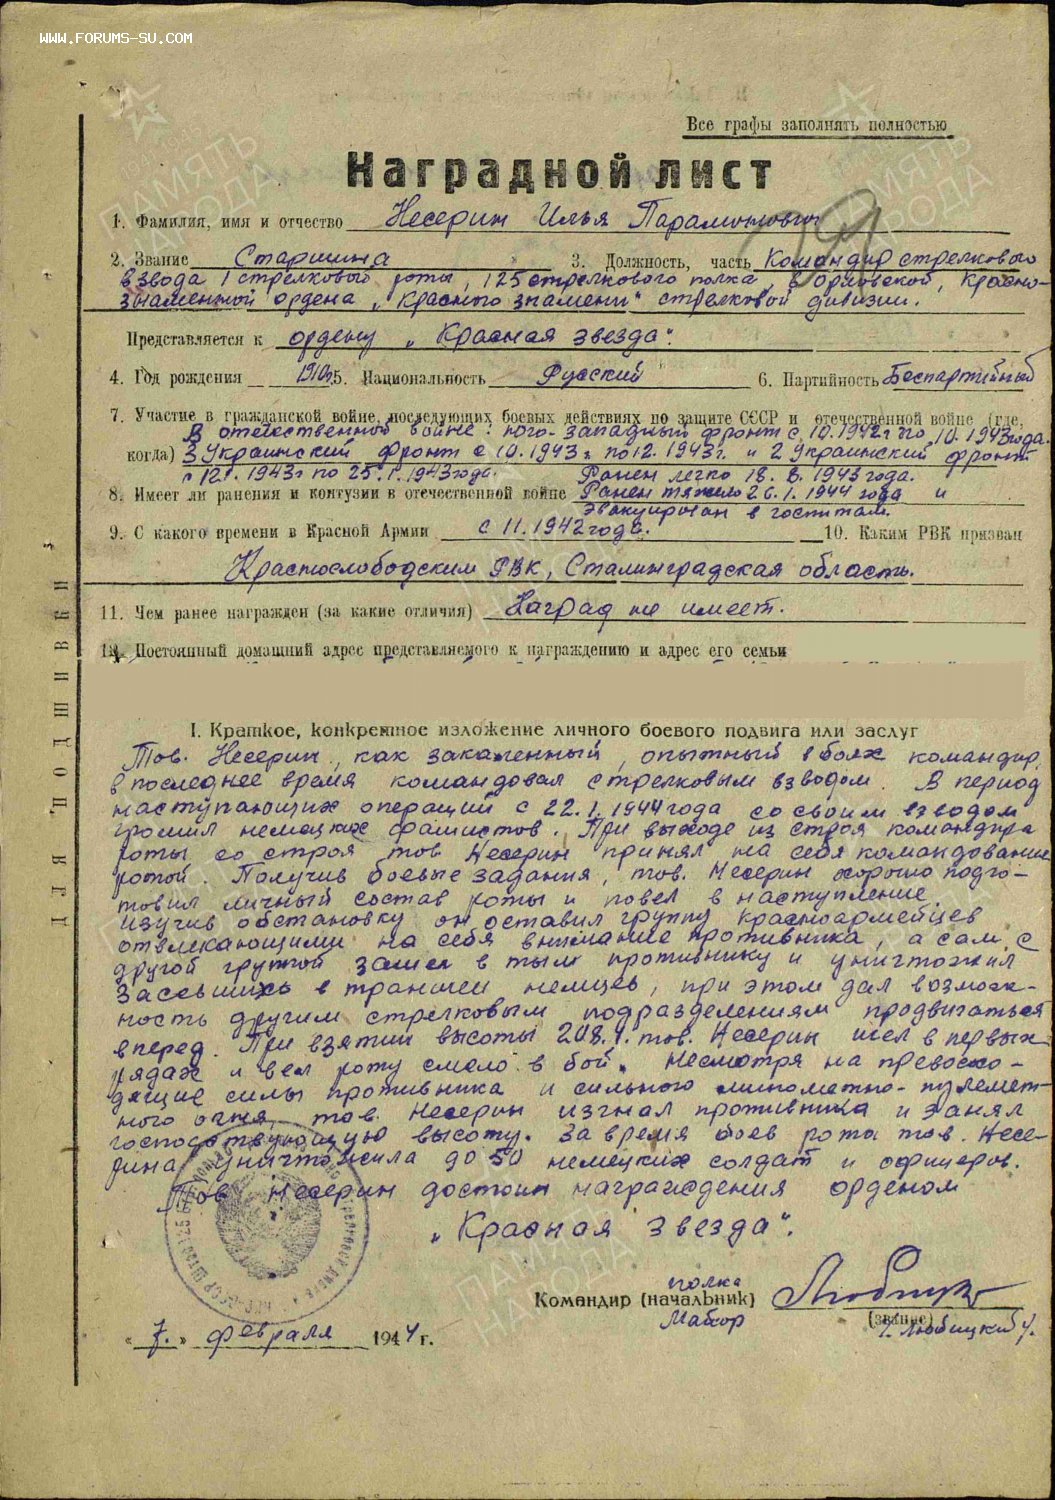 WWW.FORUMS-SU.COM
Все графы заполнять полностью
Наградной лист
1. Фамилия, имя и отчество Несерин Илья Парамонович
2. Звание Старшина 3. Должность, часть Командир стрелкового
взвода 1 стрелковый роты, 125 стрелкового полка, 6 Орловской, Красно-
знаменной ордена „Красного знамени" стрелковой дивизии.
Представляется к ордену „Красная звезда".
4. Год рождения 1910г 5. Национальность Русский 6. Партийность Беспартийный
7. Участие в гражданской войне, последующих боевых действиях по защите СССР и отечественной войне (где,
В отечественной войне: Юго-Западный фронт с 10.1942г по 10.1943года.
когда) 3 Украинский фронт с 10.1943г по 12.1943г. и 2 Украинский фронт
с 12.1943г по 25.1.1943года. Ранен легко 18.8.1943года.
8. Имеет ли ранения и контузии в отечественной войне Ранен тяжело 26.1.1944 года и
эвакуирован в госпиталь.
9. С какого времени в Красной Армии с 11.1942года. 10. Каким РВК призван
Краснослободским РВК, Сталинградская область.
11. Чем ранее награжден (за какие отличия) Наград не имеет.
12. Постоянный домашний адрес представляемого к награждению и адрес его семьи
I. Краткое, конкретное изложение личного боевого подвига или заслуг
Тов. Несерин, как закаленный, опытный в боях командир,
в последнее время командовал стрелковым взводом. В период
наступающих операций с 22.1.1944года со своим взводом
громил немецких фашистов. При выходе из строя командира
роты со строя тов Несерин принял на себя командование
ротой. Получив боевые задания, тов. Несерин хорошо подго-
товил личный состав роты и повел в наступление.
Изучив обстановку он оставил группу красноармейцев
отвлекающими на себя внимание противника, а сам с
другой группой зашел в тыл противнику и уничтожил
засевших в траншеи немцев, при этом дал возмож-
ность другим стрелковым подразделениям продвигаться
вперед. При взятии высоты 208.1. тов. Несерин шел в первых
рядах и вел роту смело в бой. Несмотря на превосхо-
дящие силы противника и сильного минометно-пулемет-
ного огня, тов. Несерин изгнал противника и занял
господствующую высоту. За время боев рота тов. Несе-
рина уничтожила до 50 немецких солдат и офицеров.
Тов. Несерин достоин награждения орденом
„Красная звезда".
полка
Командир (начальник)
Майор (звание) /Любицкий/
„7." февраля 1944 г.
ДЛЯ ПОДШИВКИ
ПАМЯТЬ НАРОДА